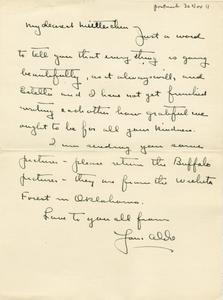 postmark 30 Nov 11
My dearest
Just a word
to tell you that everything is going
beautifully, as it always will, and
Estella and I have not yet finished
writing each other how grateful we
ought to be for all your kindness.
I am sending you some
pictures - please return the Buffalo
pictures - they are from the Wichita
Forest in Oklahoma.
Love to you all from
Your Aldo